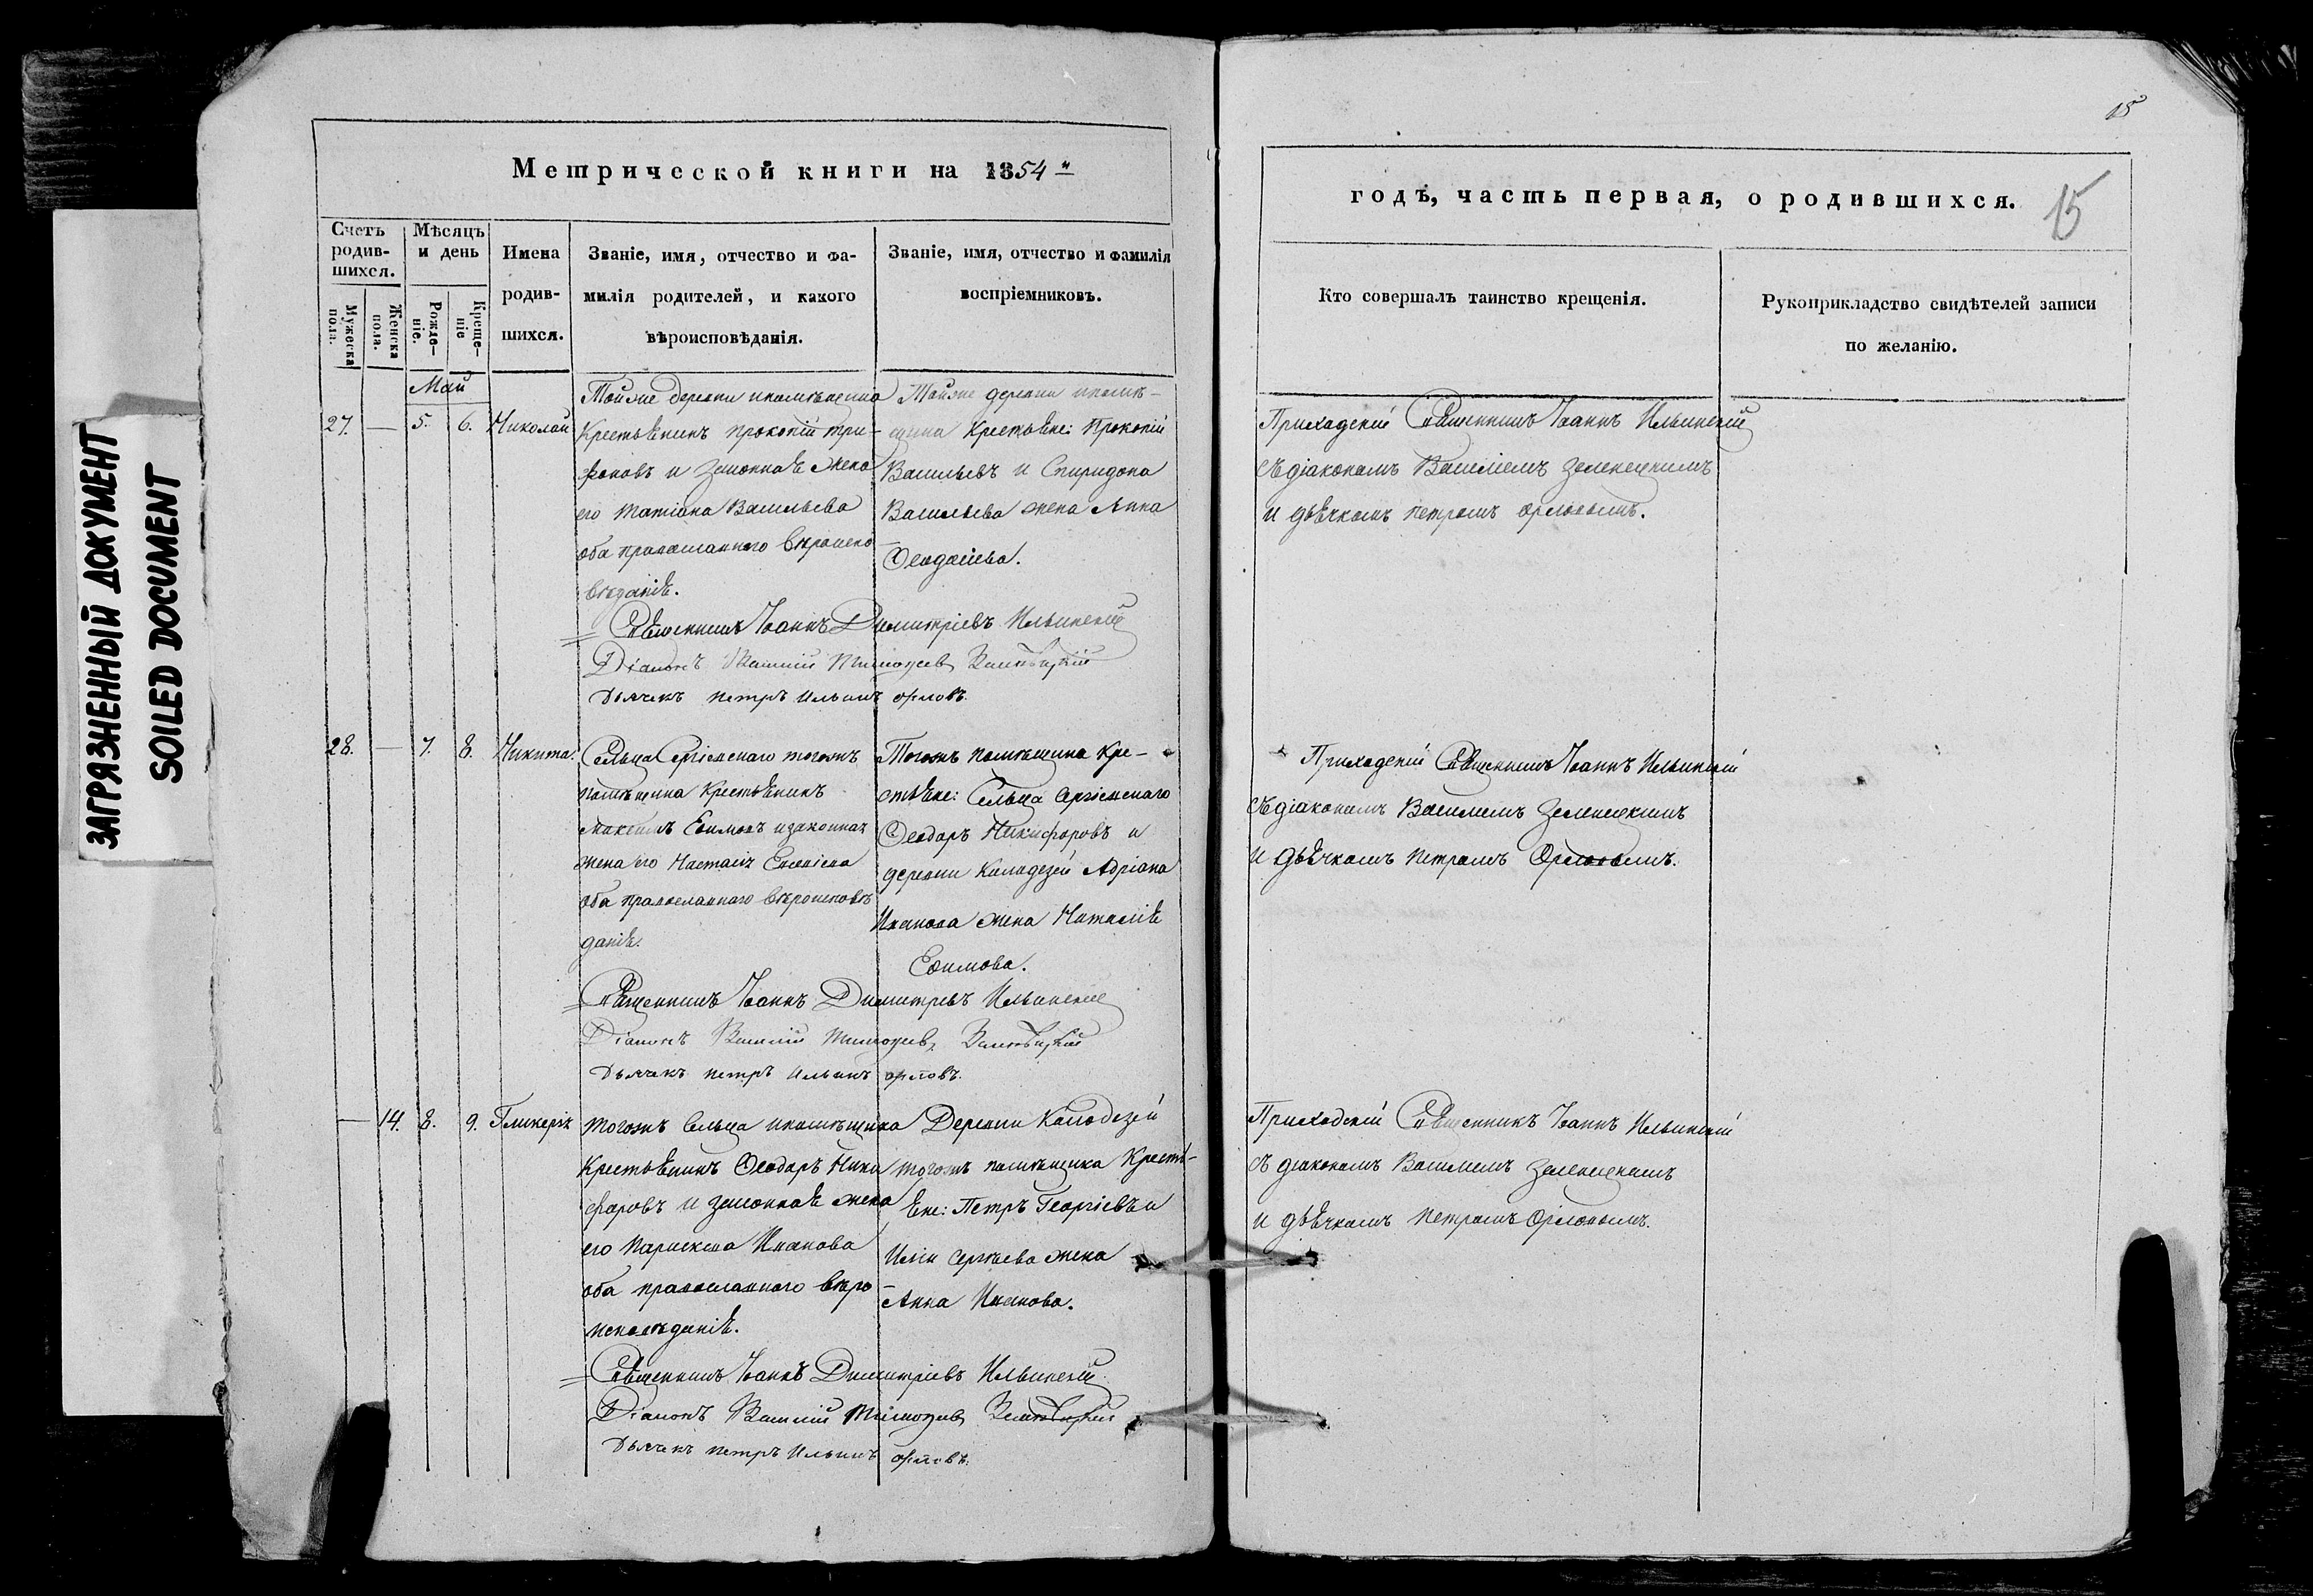 ЗАГРЯЗНЕННЫЙ ДОКУМЕНТ
SOILED DOCUMENT
Метрической книги на 1854й
Счетъ родившихся.
Мужеска пола.
Женска пола.
Мѣсяцъ и день
Рожденіе.
Крещеніе
Имена
родив-
шихся.
Званіе, имя, отчество и фа-
милія родителей, и какого
вѣроисповѣданія.
Званіе, имя, отчество и фамилія
воспріемниковъ.
Май
27. — 5. 6. Николай
Тойже деревни и помѣщика
Крестьянинъ Прокопій Три-
фоновъ и законная жена
его Татіана Васильева
оба православнаго вѣроиспо-
вѣданія.
Тойже деревни и помѣ-
щика Крестьяне: Прокопій
Васильевъ и Спиридона
Васильева жена Анна
Ѳеодосіева.
Священникъ Іоаннъ Димитріевъ Ильинскій
Діаконъ Василій Зеленецкій
Дьячекъ Петръ Ильинъ Орловъ.
28. — 7. 8. Никита.
Сельца Сергіевскаго тогожъ
помѣщика Крестьянинъ
Максимъ Ефимовъ и законная
жена его Настасія
оба православнаго вѣроисповѣ
данія.
Тогожъ помѣщика Кре-
стьяне: Сельца Сергіевскаго
Ѳеодоръ Никифоровъ и
деревни Колодезей Адріана
Иванова жена Наталія
Ефимова.
Священникъ Іоаннъ Димитріевъ Ильинскій
Діаконъ Василій Зеленецкій
Дьячекъ Петръ Ильинъ Орловъ.
— 14. 8. 9. Гликерія
Тогожъ Сельца и помѣщика
Крестьянинъ Ѳеодоръ Ники
форовъ и законная жена
его Параскева Иванова
оба православнаго вѣро-
исповѣданія.
Деревни Колодезей
тогожъ помѣщика Кресть-
яне: Петръ Георгіевъ и
Иліи Сергѣева жена
Анна Иванова.
Священникъ Іоаннъ Димитріевъ Ильинскій
Діаконъ Василій Зеленецкій
Дьячекъ Петръ Ильинъ Орловъ.
15
годъ, часть первая, о родившихся.
15
Кто совершалъ таинство крещенія.
Рукоприкладство свидѣтелей записи
по желанію.
Приходскій Священникъ Іоаннъ Ильинскій
съ діакономъ Василіемъ Зеленецкимъ
и дьячкомъ Петромъ Орловымъ.
Приходскій Священникъ Іоаннъ Ильинскій
съ діакономъ Василіемъ Зеленецкимъ
и дьячкомъ Петромъ Орловымъ.
Приходскій Священникъ Іоаннъ Ильинскій
съ діакономъ Василіемъ Зеленецкимъ
и дьячкомъ Петромъ Орловымъ.